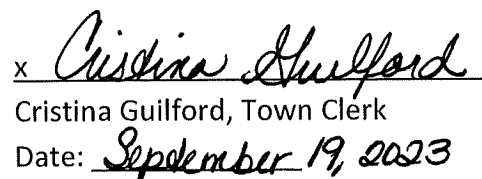 x Cristina Guilford
Cristina Guilford, Town Clerk
Date: September 19, 2023